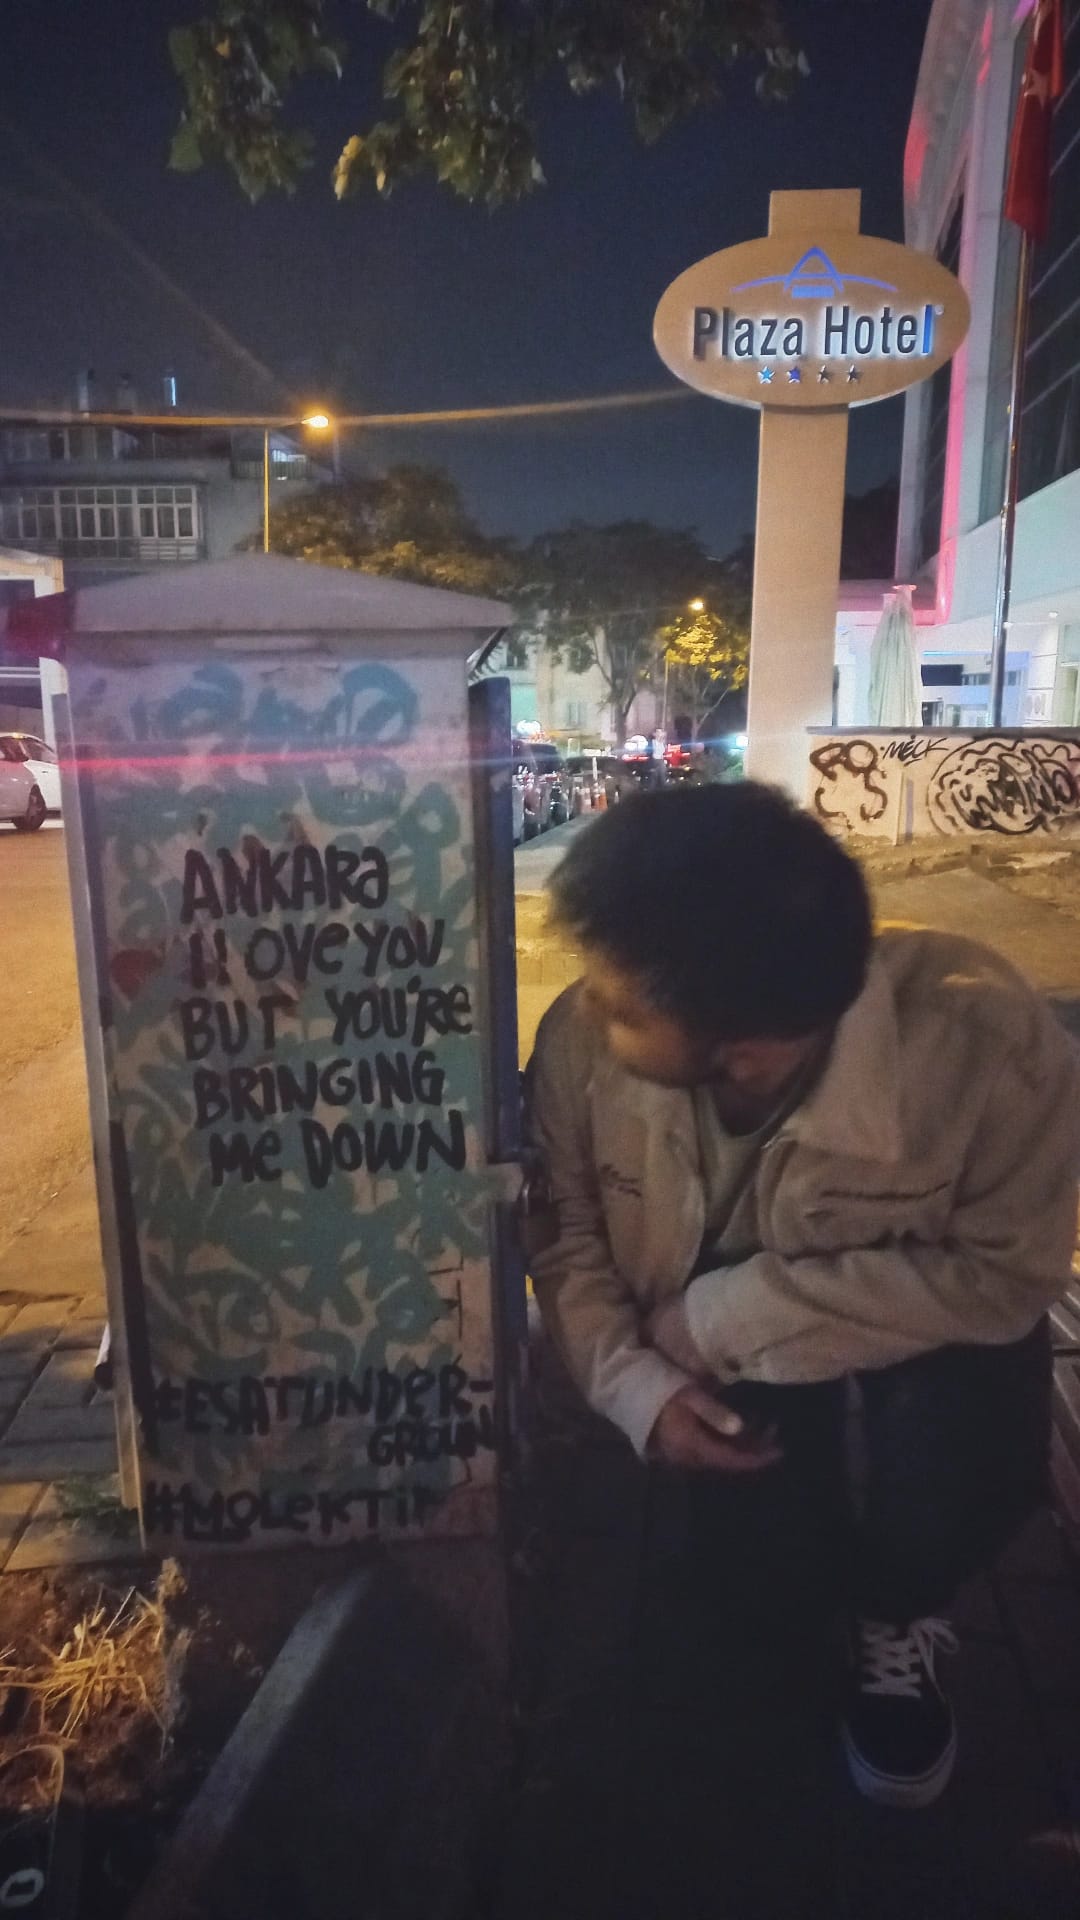 Plaza Hotel
MECK
ANKARA
I LOVE YOU
BUT YOU'RE
BRINGING
ME DOWN
#ESATUNDER-
GROUN
#MOLEKTIF